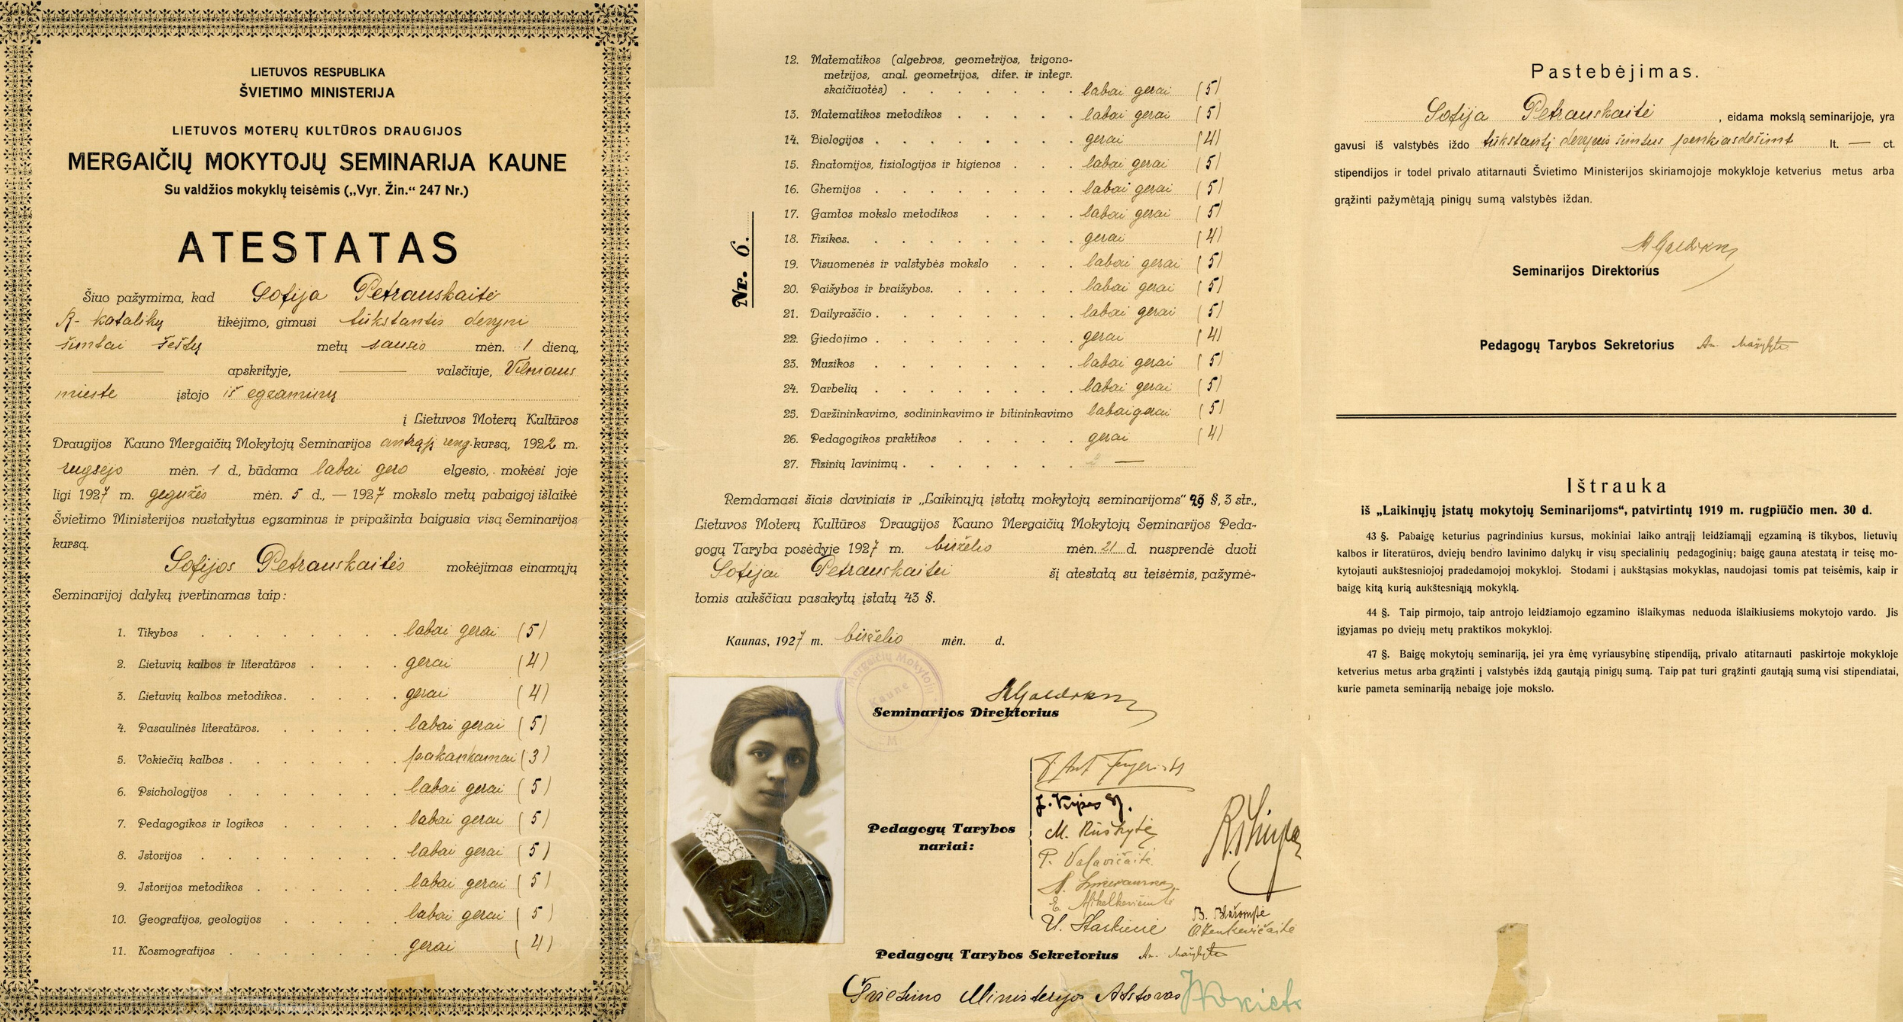 LIETUVOS RESPUBLIKA
ŠVIETIMO MINISTERIJA
LIETUVOS MOTERŲ KULTŪROS DRAUGIJOS
MERGAIČIŲ MOKYTOJŲ SEMINARIJA KAUNE
Su valdžios mokyklų teisėmis („Vyr. Žin.“ 247 Nr.)
ATESTATAS
Šiuo pažymima, kad Sofija Petrauskaitė
R-katalikų tikėjimo, gimusi tūkstantis devyni
šimtai šeštų metų sausio mėn. 1 dieną,
apskrityje, valsčiuje, Vilniaus
mieste įstojo iš egzaminų
į Lietuvos Moterų Kultūros
Draugijos Kauno Mergaičių Mokytojų Seminarijos antrąjį reng. kursą, 1922 m.
rugsėjo mėn. 1 d., būdama labai gero elgesio, mokėsi joje
ligi 1927 m. gegužės mėn. 5 d., — 1927 mokslo metų pabaigoj išlaikė
Švietimo Ministerijos nustatytus egzaminus ir pripažinta baigusia visą Seminarijos
kursą.
Sofijos Petrauskaitės mokėjimas einamųjų
Seminarijoj dalykų įvertinamas taip:
1. Tikybos labai gerai (5)
2. Lietuvių kalbos ir literatūros gerai (4)
3. Lietuvių kalbos metodikos. gerai (4)
4. Pasaulinės literatūros. labai gerai (5)
5. Vokiečių kalbos pakankamai (3)
6. Psichologijos labai gerai (5)
7. Pedagogikos ir logikos labai gerai (5)
8. Istorijos labai gerai (5)
9. Istorijos metodikos labai gerai (5)
10. Geografijos, geologijos labai gerai (5)
11. Kosmografijos gerai (4)
Nr. 6.
12. Matematikos (algebros, geometrijos, trigono-
metrijos, anal. geometrijos, difer. ir integr.
skaičiuotės) labai gerai (5)
13. Matematikos metodikos labai gerai (5)
14. Biologijos gerai (4)
15. Anatomijos, fiziologijos ir higienos labai gerai (5)
16. Chemijos labai gerai (5)
17. Gamtos mokslo metodikos labai gerai (5)
18. Fizikos. gerai (4)
19. Visuomenės ir valstybės mokslo labai gerai (5)
20. Paišybos ir braižybos. labai gerai (5)
21. Dailyraščio labai gerai (5)
22. Giedojimo gerai (4)
23. Muzikos labai gerai (5)
24. Darbelių labai gerai (5)
25. Daržininkavimo, sodininkavimo ir bitininkavimo labai gerai (5)
26. Pedagogikos praktikos gerai (4)
27. Fizinių lavinimų —
Remdamasi šiais daviniais ir „Laikinųjų įstatų mokytojų seminarijoms“ 49 §, 3 str.,
Lietuvos Moterų Kultūros Draugijos Kauno Mergaičių Mokytojų Seminarijos Peda-
gogų Taryba posėdyje 1927 m. birželio mėn. 21 d. nusprendė duoti
Sofijai Petrauskaitei šį atestatą su teisėmis, pažymė-
tomis aukščiau pasakytų įstatų 43 §.
Kaunas, 1927 m. birželio mėn. d.
Mergaičių Mokytojų
Kaune
Seminarijos Direktorius
Pedagogų Tarybos
nariai:
M. Ruškytė
P. Valavičaitė
U. Starkienė
Pedagogų Tarybos Sekretorius
Švietimo Ministerijos Atstovas
Pastebėjimas.
Sofija Petrauskaitė, eidama mokslą seminarijoje, yra
gavusi iš valstybės iždo tūkstantį devynis šimtus penkiasdešimt lt. — ct.
stipendijos ir todel privalo atitarnauti Švietimo Ministerijos skiriamojoje mokykloje ketverius metus arba
grąžinti pažymėtąją pinigų sumą valstybės iždan.
Seminarijos Direktorius
Pedagogų Tarybos Sekretorius
Ištrauka
iš „Laikinųjų įstatų mokytojų Seminarijoms“, patvirtintų 1919 m. rugpiūčio men. 30 d.
43 §. Pabaigę keturius pagrindinius kursus, mokiniai laiko antrąjį leidžiamąjį egzaminą iš tikybos, lietuvių
kalbos ir literatūros, dviejų bendro lavinimo dalykų ir visų specialinių pedagoginių; baigę gauna atestatą ir teisę mo-
kytojauti aukštesniojoj pradedamojoj mokykloj. Stodami į aukštąsias mokyklas, naudojasi tomis pat teisėmis, kaip ir
baigę kitą kurią aukštesniąją mokyklą.
44 §. Taip pirmojo, taip antrojo leidžiamojo egzamino išlaikymas neduoda išlaikiusiems mokytojo vardo. Jis
įgyjamas po dviejų metų praktikos mokykloj.
47 §. Baigę mokytojų seminariją, jei yra ėmę vyriausybinę stipendiją, privalo atitarnauti paskirtoje mokykloje
ketverius metus arba grąžinti į valstybės iždą gautąją pinigų sumą. Taip pat turi grąžinti gautąją sumą visi stipendiatai,
kurie pameta seminariją nebaigę joje mokslo.